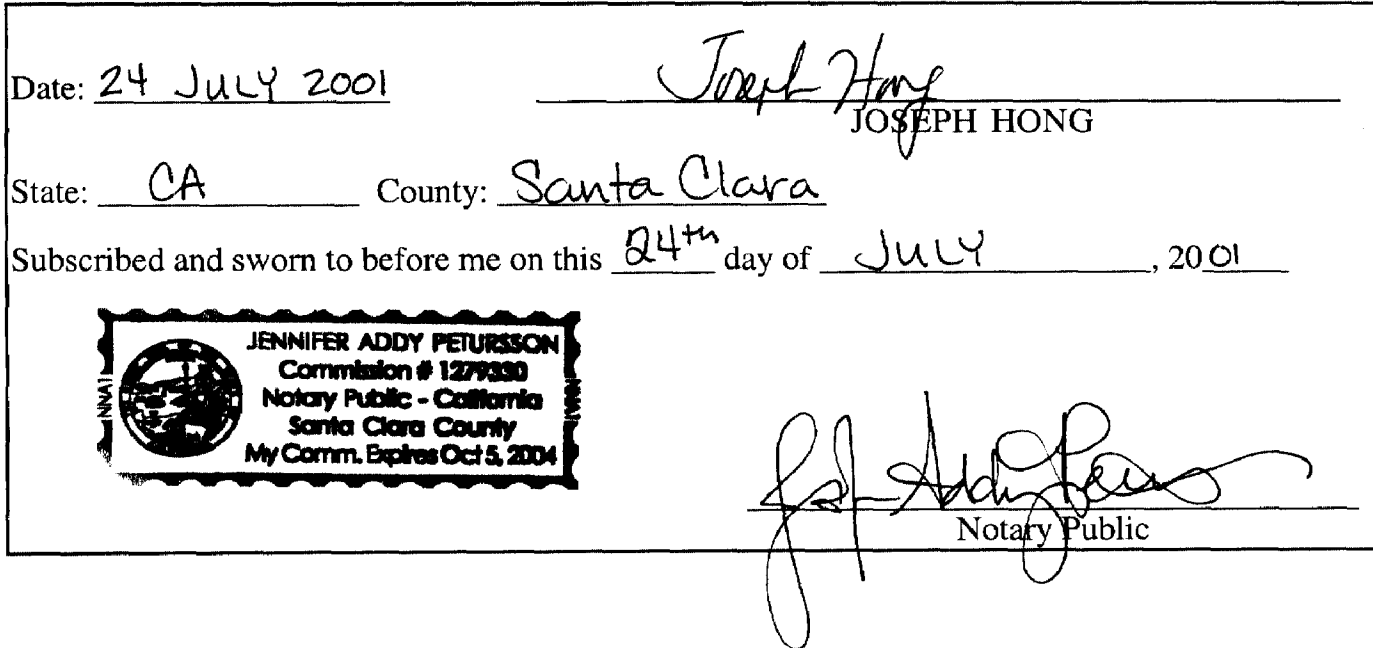 Date: 24 JULY 2001 Joseph Hong
JOSEPH HONG
State: CA County: Santa Clara
Subscribed and sworn to before me on this 24th day of JULY, 2001
JENNIFER ADDY PETURSSON
Commission # 1279330
Notary Public - California
Santa Clara County
My Comm. Expires Oct 5, 2004
NNA1
NNA1
Addy
Notary Public